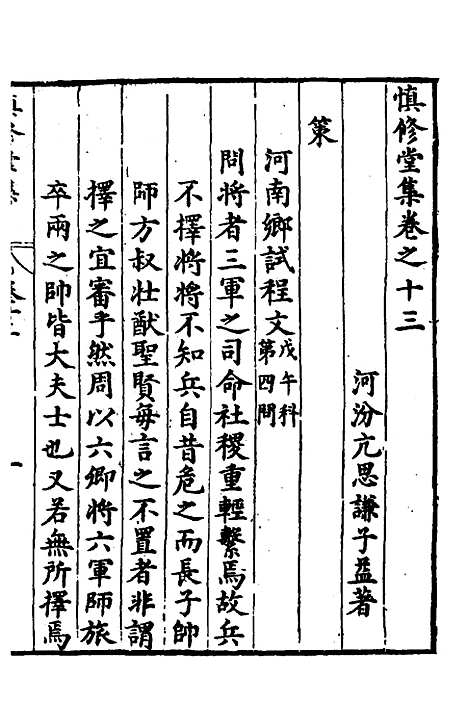 慎修堂集卷之十三
河汾亢思謙子益著
策
河南鄉試程文戊午科第四問
問將者三軍之司命社稷重輕繫焉故兵
不擇將將不知兵自昔危之而長子帥
師方叔壯猷聖賢每言之不置者非謂
擇之宜審乎然周以六卿將六軍師旅
卒兩之帥皆大夫士也又若無所擇焉
一